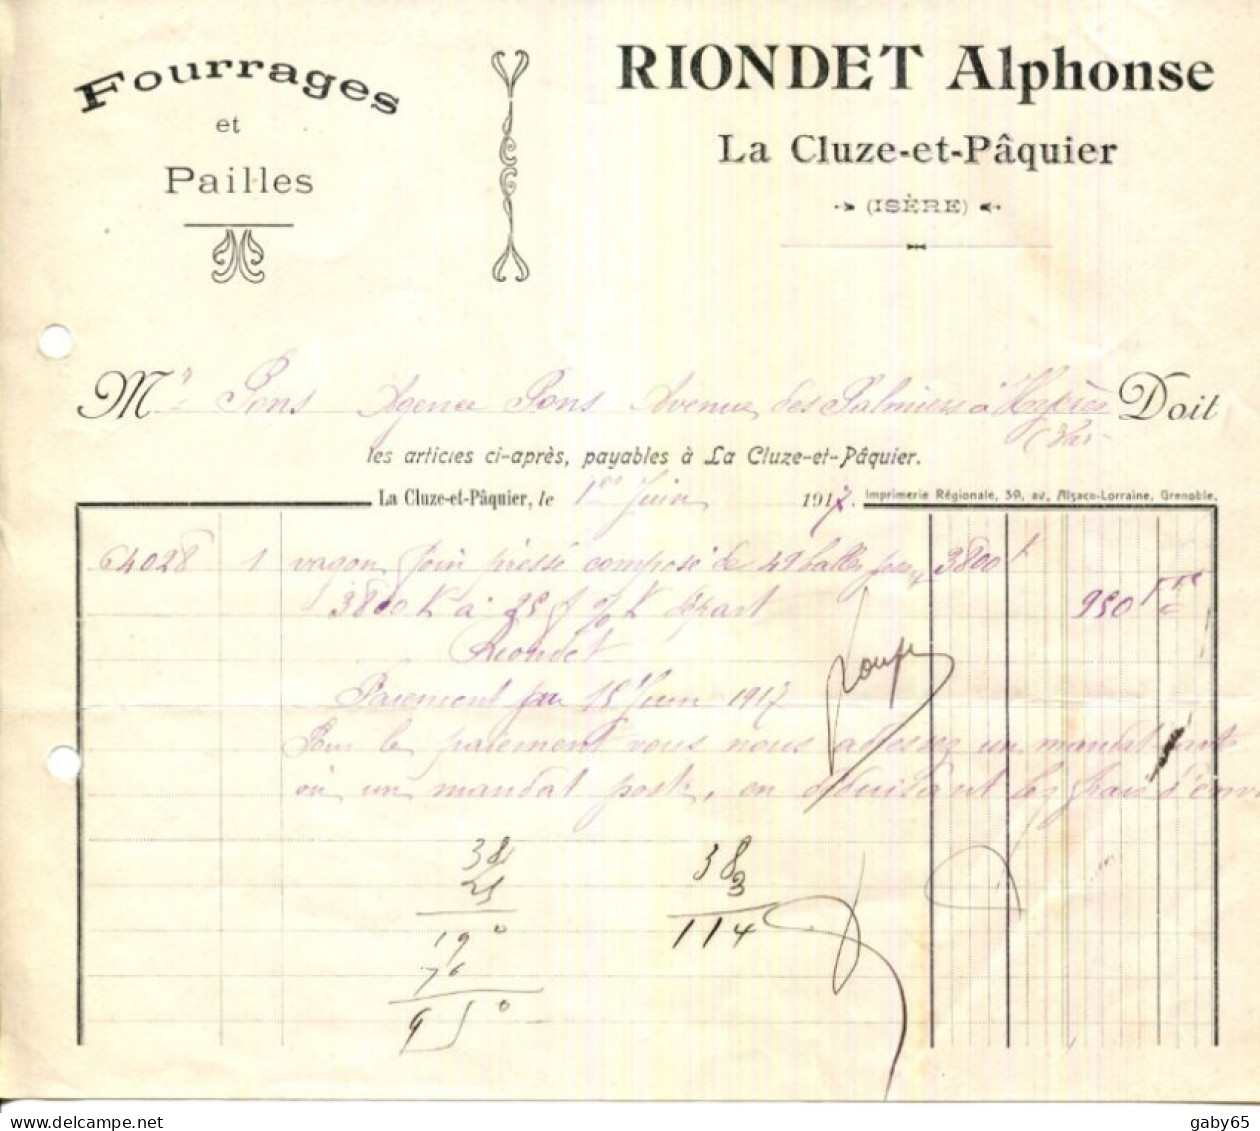 Fourrages
et
Pailles
RIONDET Alphonse
La Cluze-et-Pâquier
(ISÈRE)
Mr Pons Agence Pons Avenue des Palmiers à Hyères Doit
(Var
les articles ci-après, payables à La Cluze-et-Pâquier.
La Cluze-et-Pâquier, le 1er Juin 1917. Imprimerie Régionale, 39, av, Alsace-Lorraine, Grenoble.
64028 1 vagon foin pressé composé de 49 balles pesant 3800 k
3800 K à 25 f % K départ 950 f
Riondet
Paiement fin 15 Juin 1917
Pour le paiement vous nous adressez un mandat carte
ou un mandat poste, en déduisant les frais d'envoi
38 38
25 3
190 114
76
950
gaby65